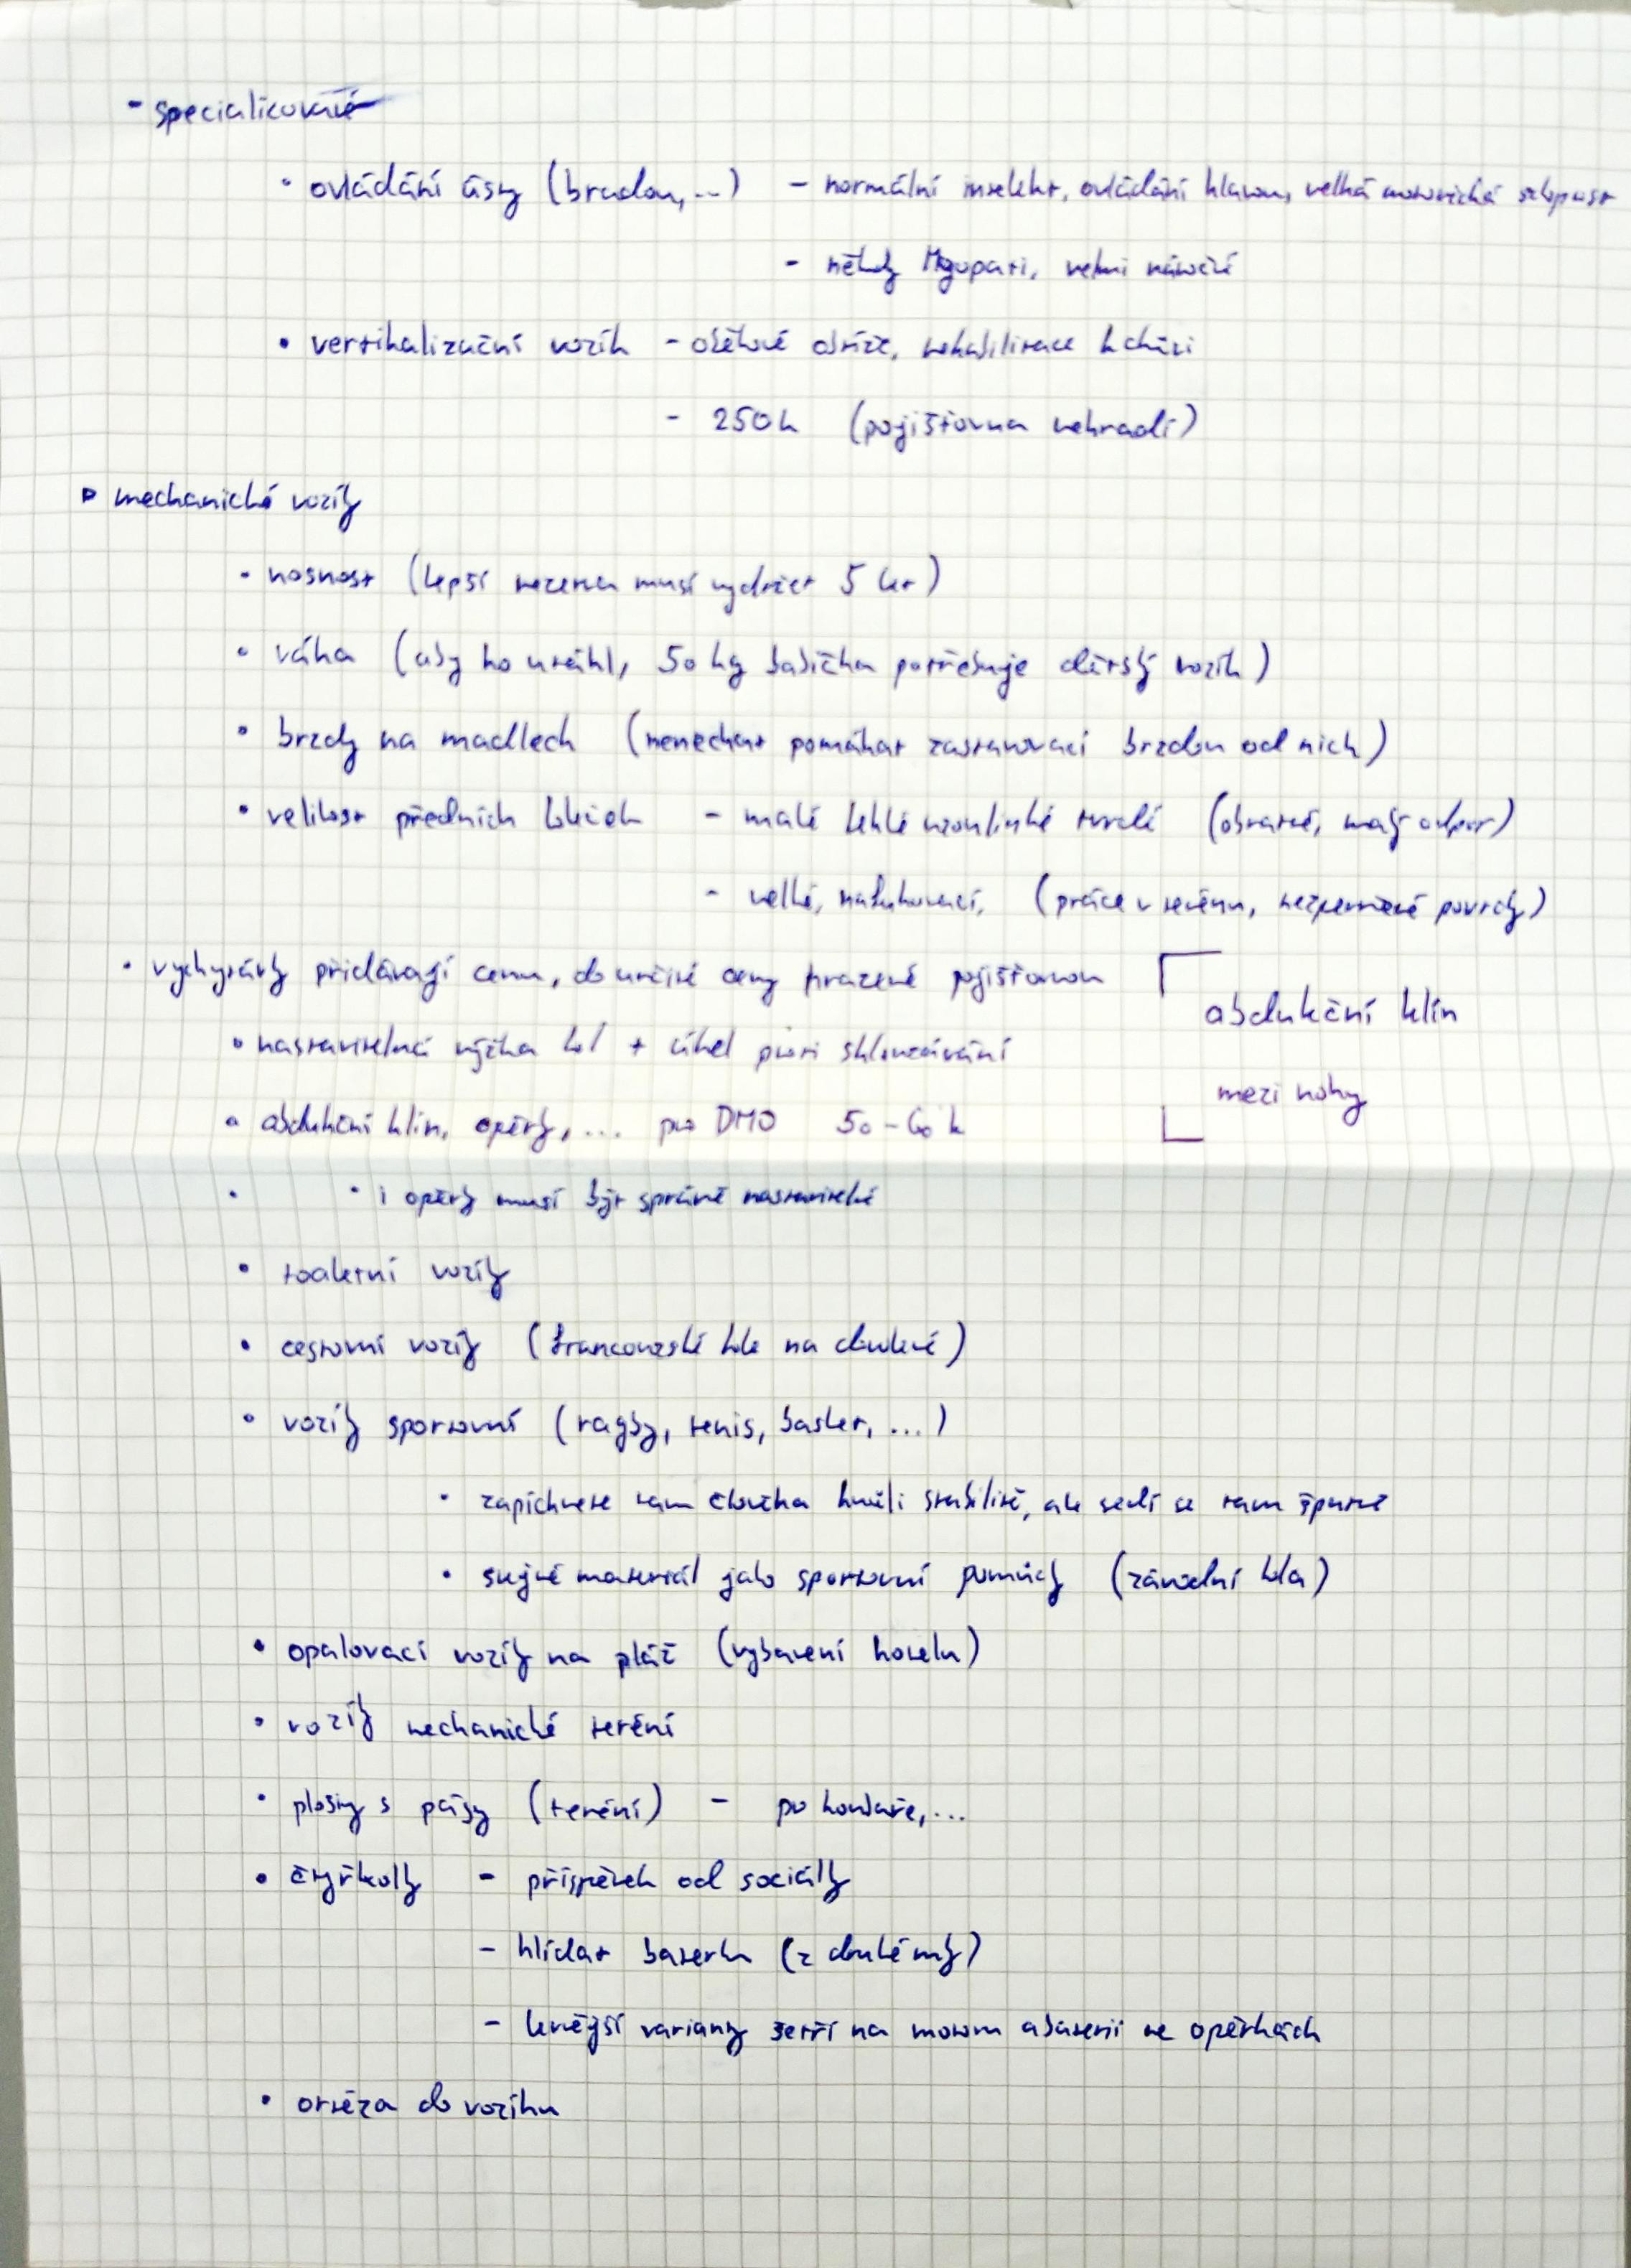 - specializované
• ovládání ústy (bradou,...) - normální intelekt, ovládání hlavou, velká motorická schopnost
- někdy Myopati, velmi náročné
• vertikalizační vozík - oběhové obtíže, rehabilitace k chůzi
- 250k (pojišťovna nehradí)
▷ mechanické vozíky
• nosnost (lepší rezerva musí vydržet 5 let)
• váha (aby ho utáhl, 50 kg babička potřebuje dětský vozík)
• brzdy na madlech (nenechat pomáhat zastavovací brzdou od nich)
• velikost předních koleček - malé lehké tvrdé (obratné, malý odpor)
- velké, nafukovací, (práce v terénu, nezpevněné povrchy)
• vychytávky přidávají cenu, do určité ceny hrazené pojišťovnou
• nastavitelná výška kol + úhel proti sklouzávání
• abdukční klín, opěrky,... pro DMO 50-60 k
abdukční klín
mezi nohy
• i opěrky musí být správně nastavitelné
• toaletní vozíky
• cestovní vozíky (francouzské hole na dovolené)
• vozíky sportovní (ragby, tenis, basket, ...)
• zapíchnete tam člověka kvůli stabilitě, ale sedí se tam špatně
• stejné materiál jako sportovní pomůcky (závodní kola)
• opalovací vozíky na pláž (vybavení hotelu)
• vozíky mechanické teréní
• plošiny s pásy (teréní) - po
• čtyřkolky - příspěvek od sociálky
- hlídat baterku (z druhé ruky)
- levnější varianty šetří na motoru a baterii ne opěrkách
• ortéza do vozíku